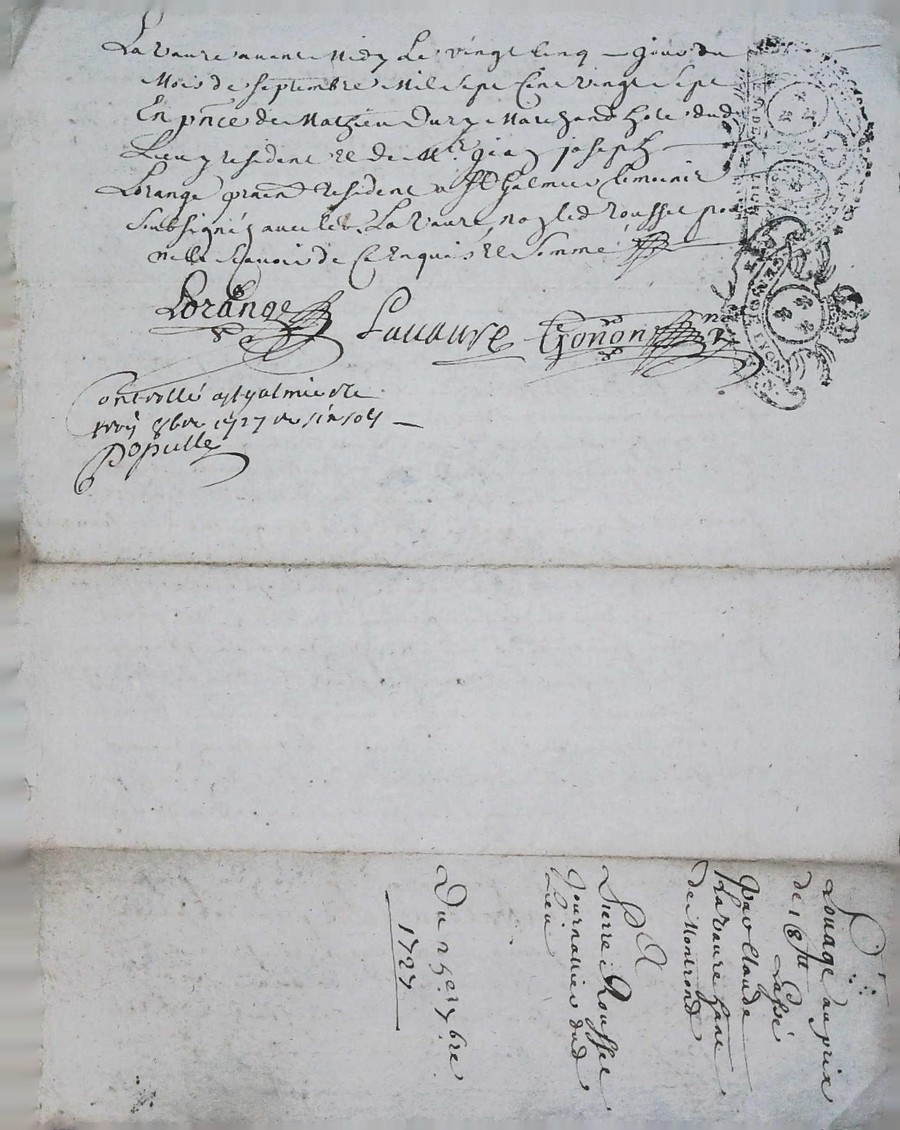 Lavaure avant Midy Le vingt cinq jour du
Mois de septembre Mil sept Cent vingt sept
En pnce de Mathieu Dury Marchand hote dud
Lieu y resident Et de Mtre joseph
Lorange resident a St Galmier
Soubsignéz avec led. Lavaure, non led Rousset pour
ne le scavoir de ce Enquis Et Sommé
Lorange Lavaure Gonon
Controllé a St galmier le
8bre 1727 six sols
Populle
Louage au prix
de 18 tt Passé
par Claude
Lavaure hane
de Montrond
A
Pierre Rousset
Journallier dud
Lieu
Du 25e 7bre
1727